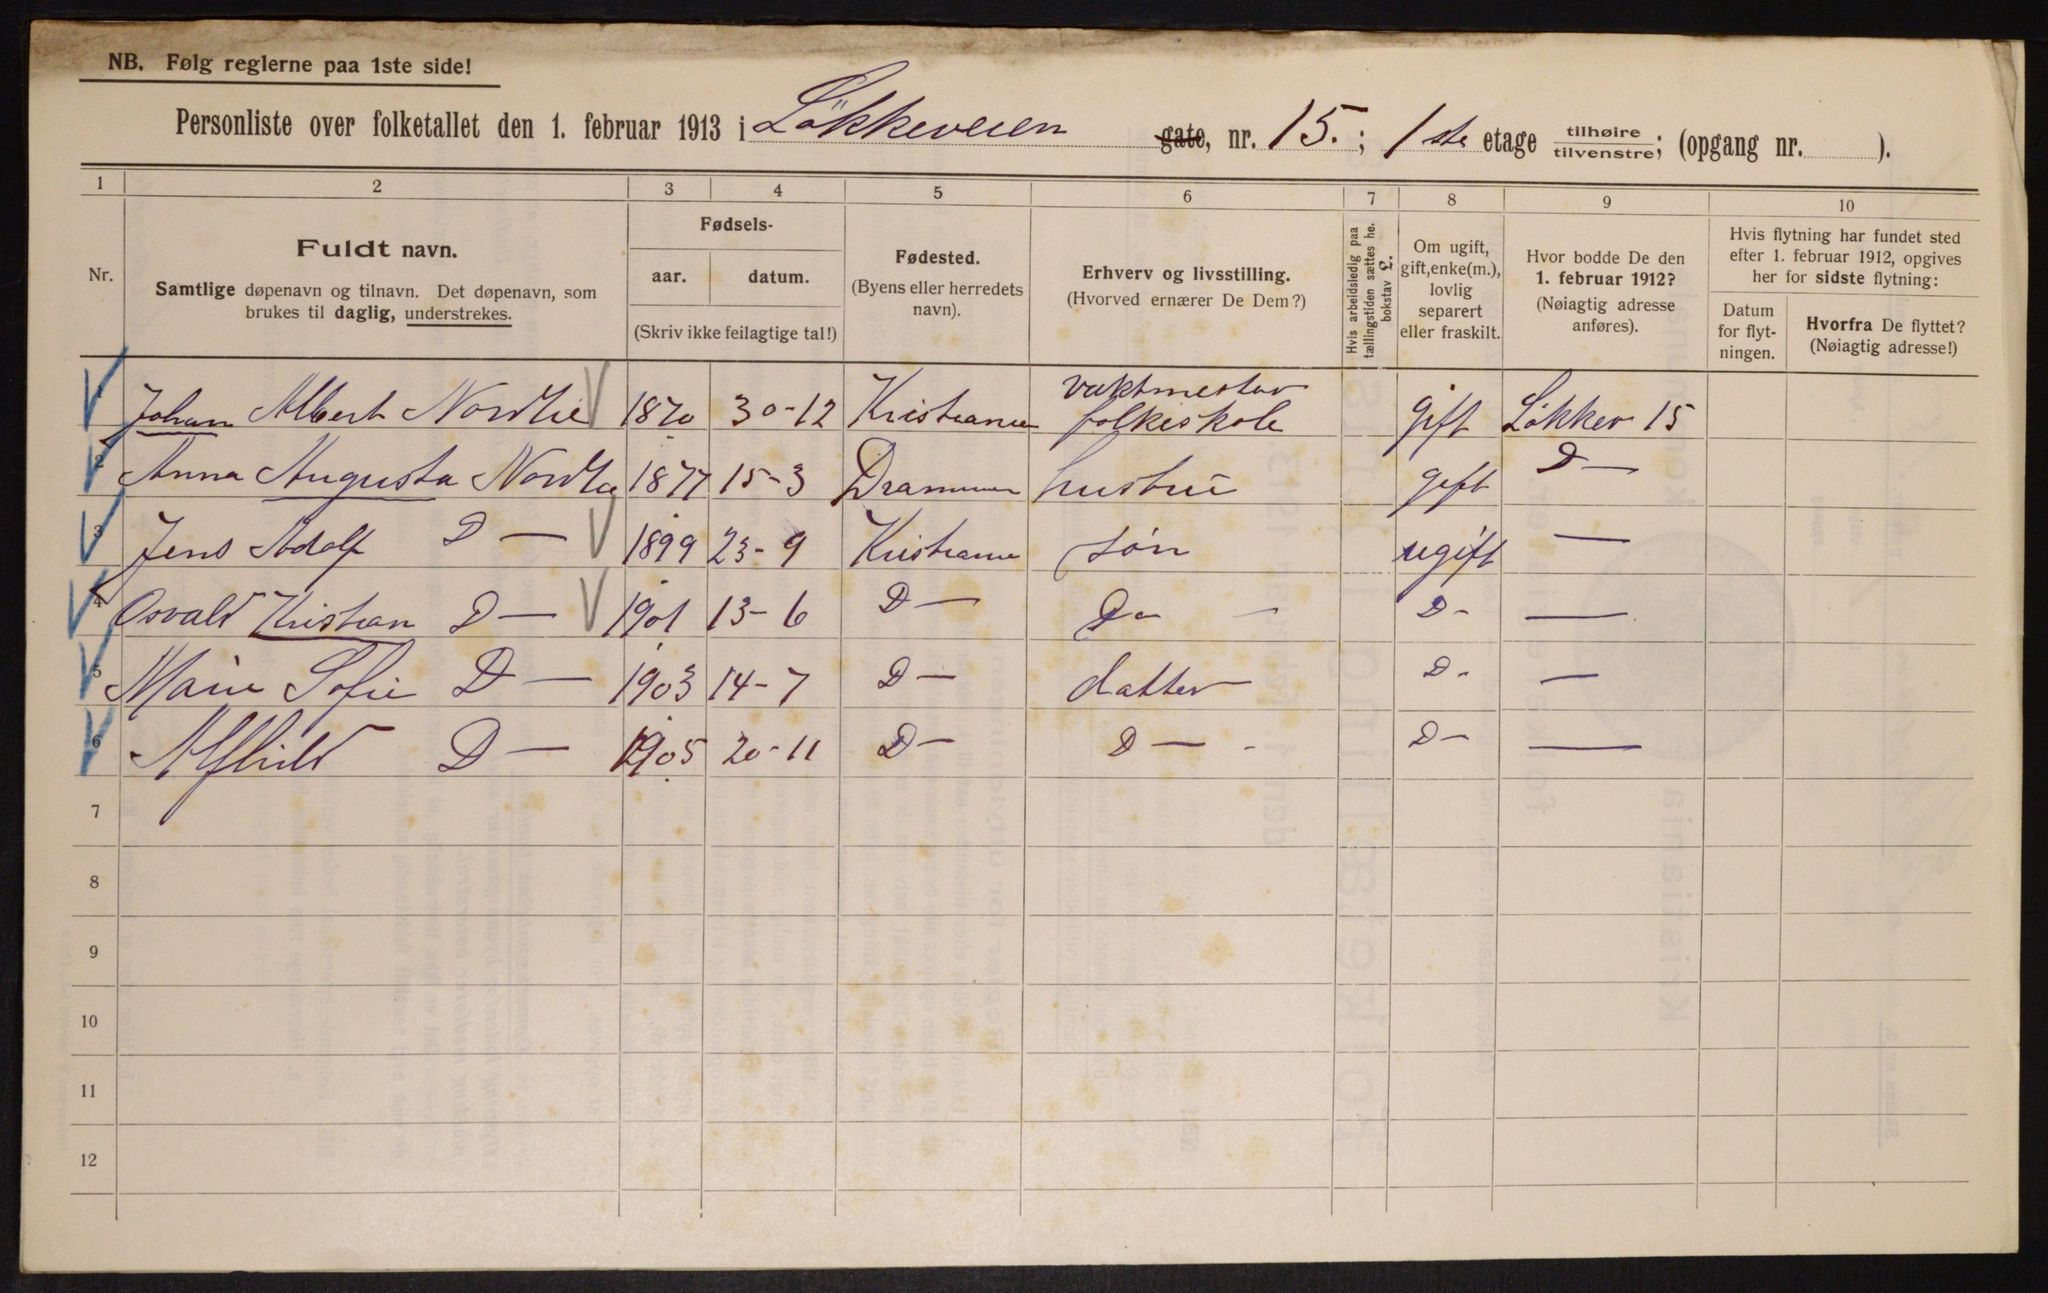 NB. Følg reglerne paa 1ste side!
Personliste over folketallet den 1. februar 1913 i Løkkeveien gate, nr. 15. ; 1ste etage tilhøire/tilvenstre; (opgang nr. ).
1 2 3 4 5 6 7 8 9 10
Nr.
Fuldt navn.
Samtlige døpenavn og tilnavn. Det døpenavn, som
brukes til daglig, understrekes.
Fødsels-
aar. datum.
(Skriv ikke feilagtige tal!)
Fødested.
(Byens eller herredets
navn).
Erhverv og livsstilling.
(Hvorved ernærer De Dem?)
Hvis arbeidsledig paa
tællingstiden sættes he.
bokstav L.
Om ugift,
gift, enke(m.),
lovlig
separert
eller fraskilt.
Hvor bodde De den
1. februar 1912?
(Nøiagtig adresse
anføres).
Hvis flytning har fundet sted
efter 1. februar 1912, opgives
her for sidste flytning:
Datum
for flyt-
ningen.
Hvorfra De flyttet?
(Nøiagtig adresse!)
1 Johan Albert Nordlie 1870 30-12 Kristiania vaktmester folkeskole gift Løkkev 15
2 Anna Augusta Nordlie 1877 15-3 Drammen hustru gift D—
3 Jens Adolf D— 1899 23-9 Kristiania søn ugift —
4 Osvald Kristian D— 1901 13-6 D— D— D- —
5 Marie Sofie D— 1903 14-7 D— datter D- —
6 Alfhild D— 1905 20-11 D— D— D— —
7
8
9
10
11
12